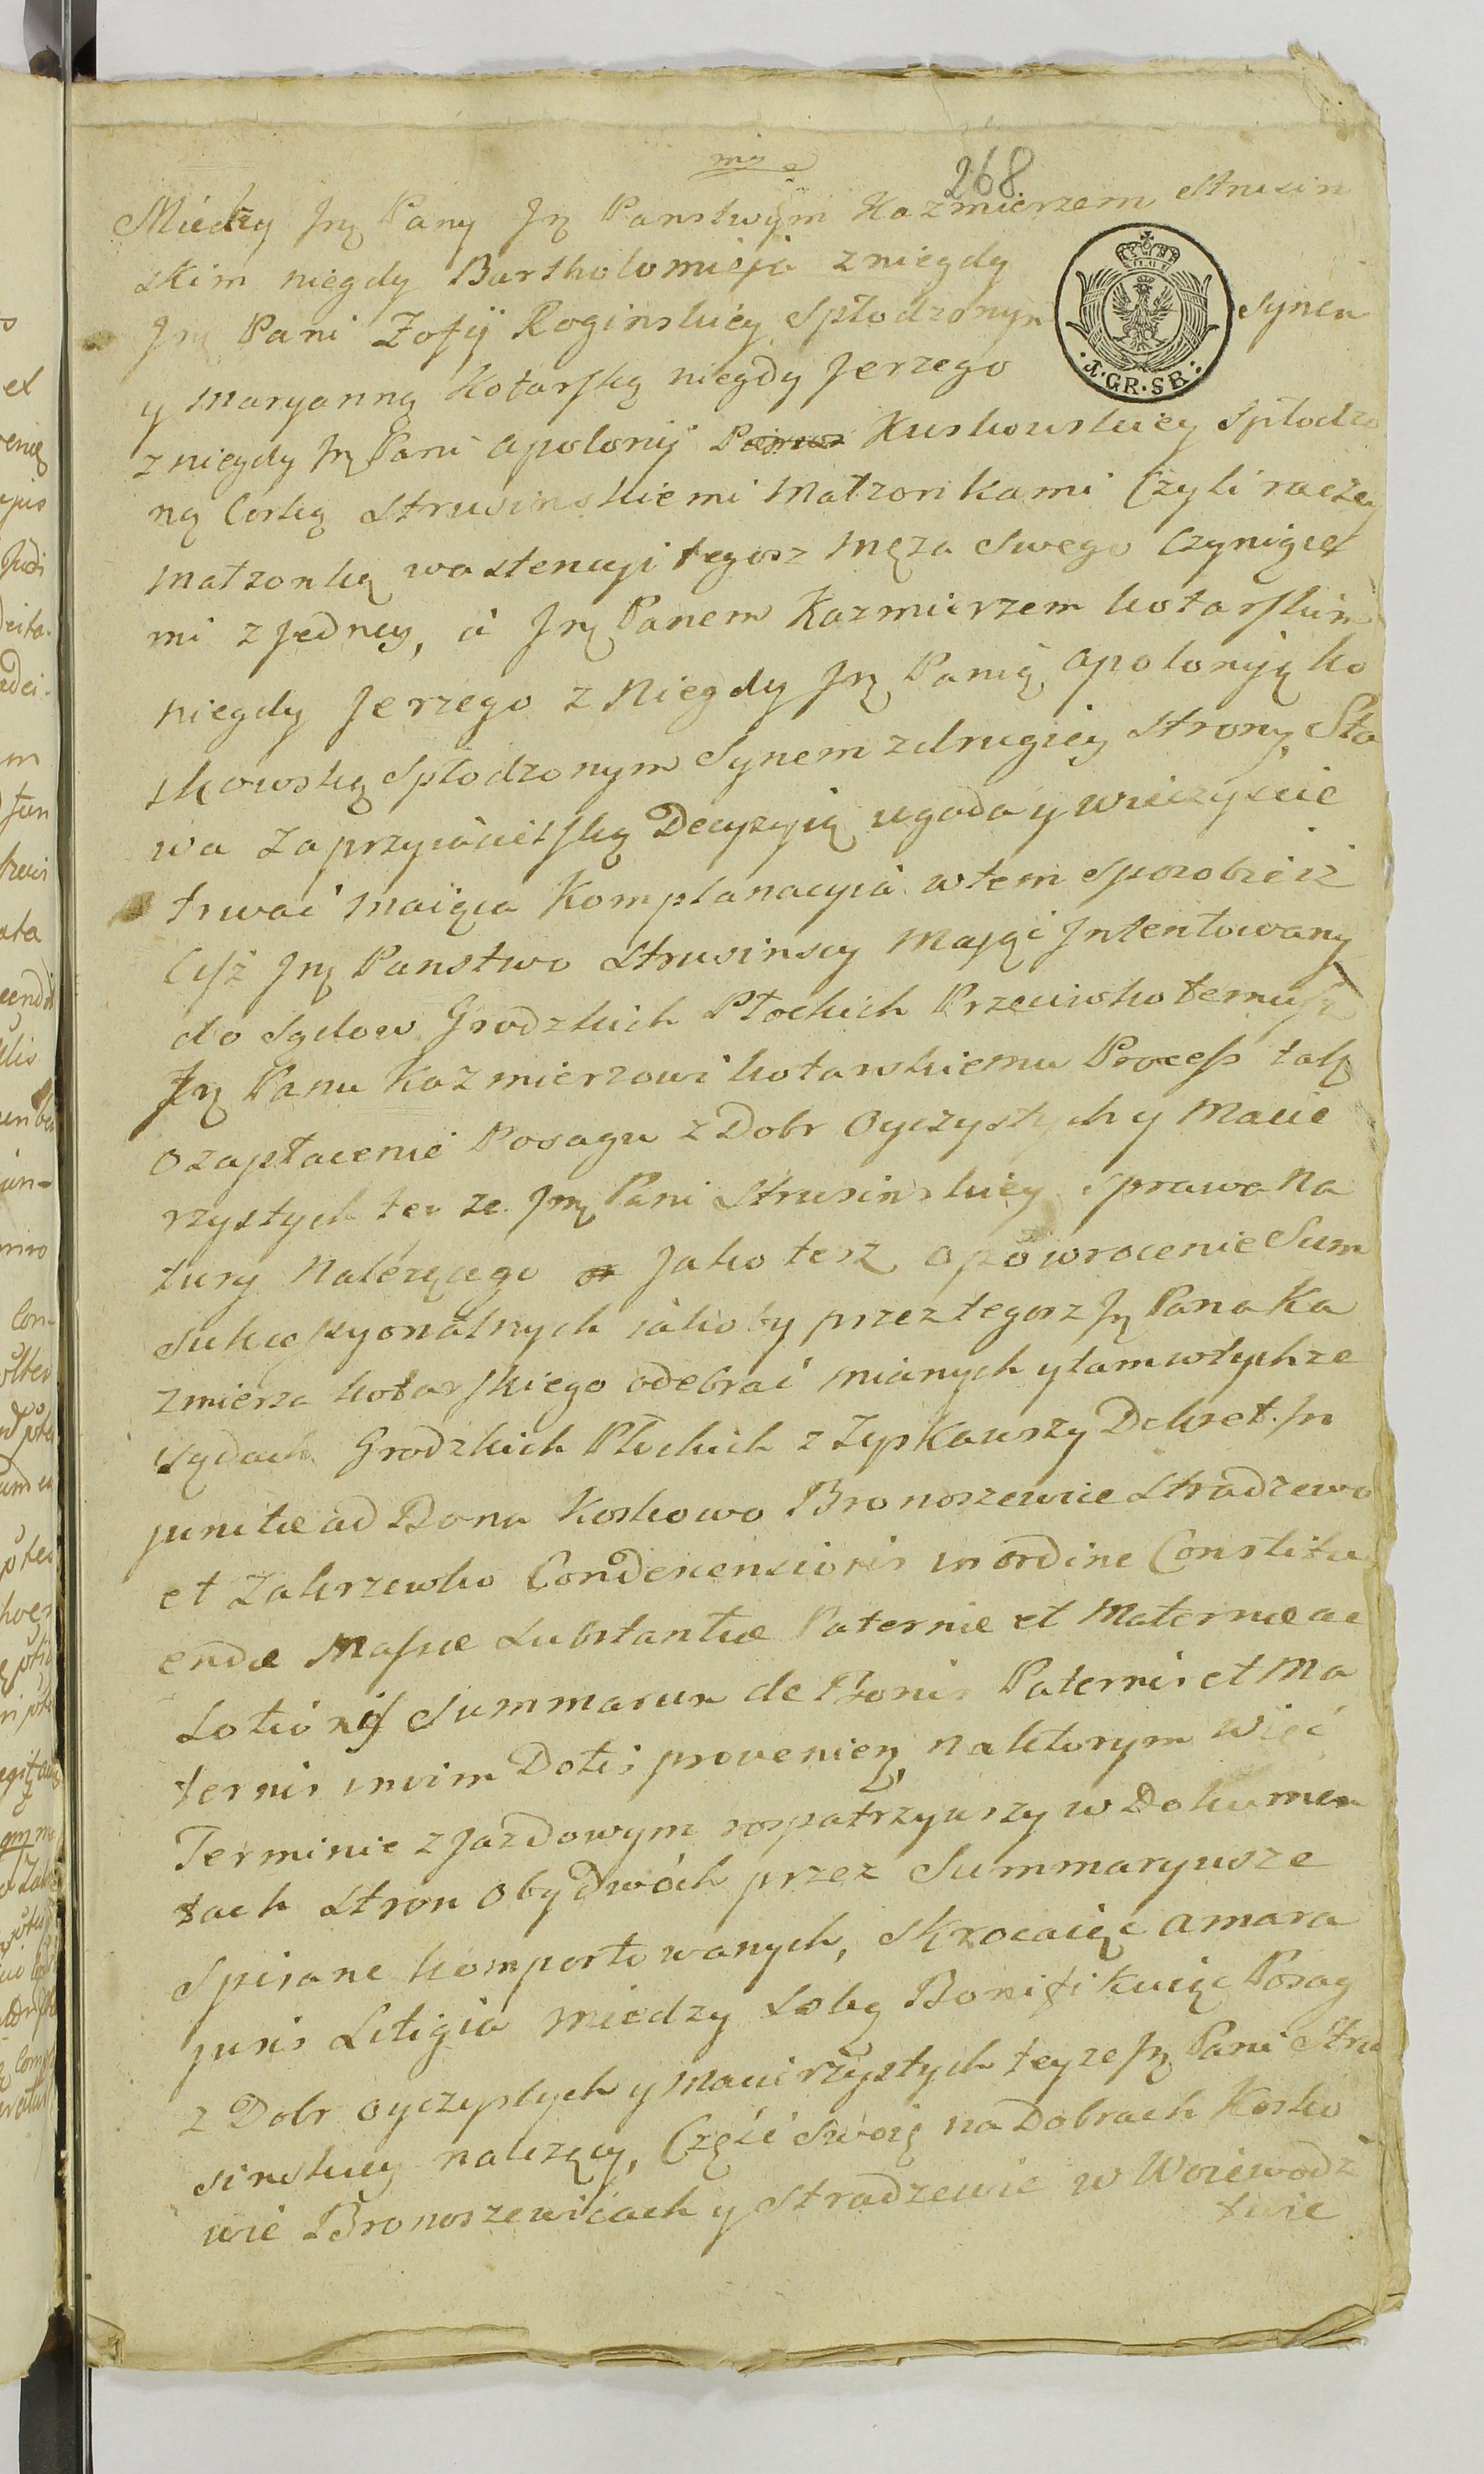 268
Miedzy Jmę Pany Jmę Panstwym Kazmierzem Strusin
skim niegdy Bartholomieja z niegdy
Jmę Pani Zofij Roginskiey Spłodzonym Synem
y Maryanną Kotarską niegdy Jerzego
z niegdy Jmę Pani Apolonij Kuskowskiey Spłodzo
ną Corką Strusinskiemi Małzonkami Czyli raczey
Małzonką w astencyi tegosz Męza Swego Czyniące
mi z jedney, á Jmę Panem Kazmierzem Kotarskim
niegdy Jerzego z Niegdy Jmę Panią Apoloniją Ko
skowską Spłodzonym Synem z drugiey Strony, Sta
wa Zaprzyiacielską Decyzyią ugoda y wieczyscie
trwać maiąca Komplanacyia w tem Sposobie iż
Ciż Jmę Panstwo Strusinscy Mając Jntentowany
do Sądow Grodzkich Płockich Przeciwko temusz
Jmę Panu Kazmierzowi Kotarskiemu Process tak
o zapłacenie Posagu z Dobr Oyczystych y Macie
rzystych tey ze Jmę Pani Strusinskiey sprawa Na
tury Nalezącego Jako tesz o powrocenie Sum
Sukcessyonalnych iakoby przez tegosz Jmę Pana Ka
zmierza Kotarskiego odebrać mianych y tam w tychze
Sądach Grodzkich Płockich zyskawszy Dekret. In
junctæ ad Bona Koskowo Bronoszewice Stradzewo
et Zakrzewko Condescensionis in ordine Constitu
endæ Massæ Substantiæ Paternæ et Maternæ ac
Solutionis Summarum de Bonis Paternis et Ma
ternis in vim Dotis provenien, na ktorym Więć
Terminie zjazdowym rospatrzywszy w Dokumen
tach Stron Obydwóch przez Summaryusze
Spisane komportowanych, Skrocaiąc amara
juris Litigia miedzy Sobą Bonifikuiąc Posag
z Dobr oyczystych y Macierzystych teyze Jmę Pani Stru
sinskiey nalezący, Część Swoią na Dobrach Kosko
wie Bronoszewicach y Stradzewie w Woiewodz
twie
J.GR.SR.